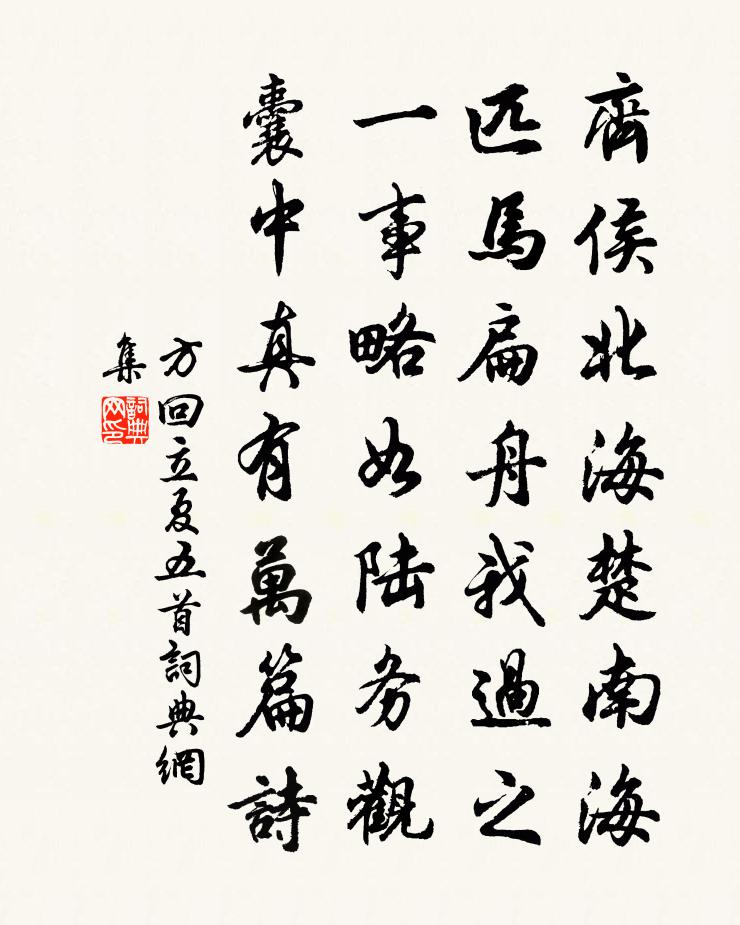 齊侯北海楚南海
匹馬扁舟我過之
一事略如陆务觀
囊中真有萬篇詩
方回立夏五首詞典網
集
詞典网印